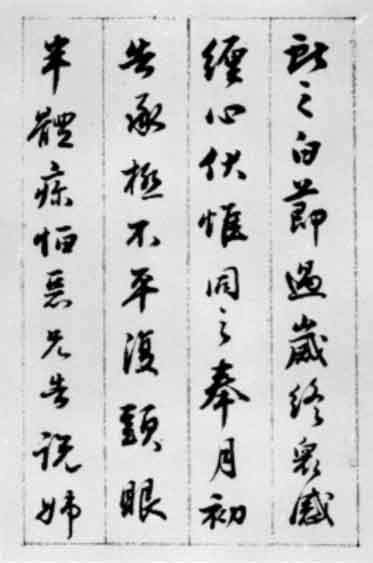 獻之白節過歲終衆感
纏心伏惟同之奉月初
告承極不平復頭眼
半體疼恒惡兄告說姊